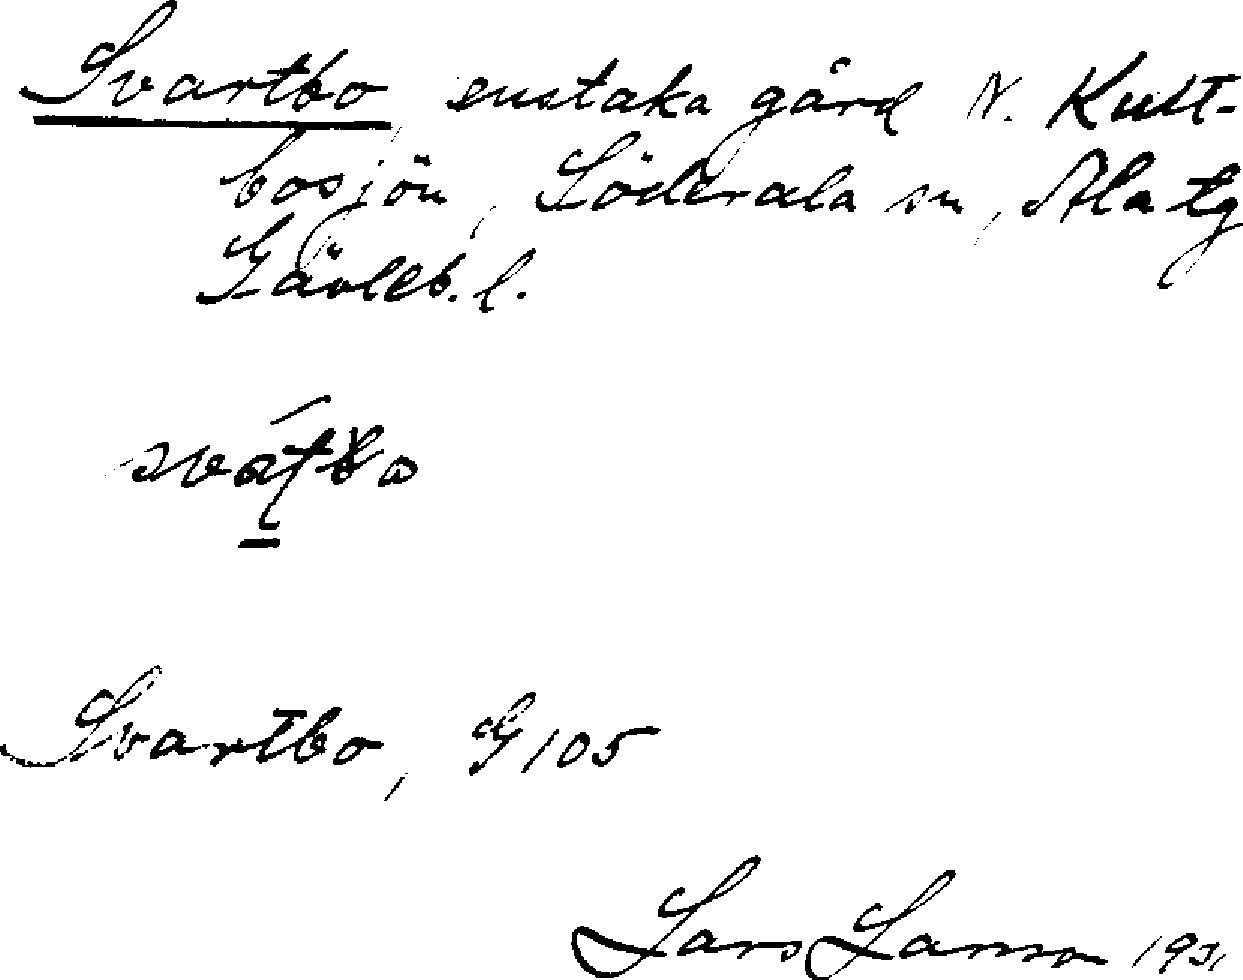 Svartbo, enstaka gård N. Kust-
bosjön, Söderala sn, Ala tg
Gävleb. l.
svátbo
Svartbo, G 105
Lars Larsson